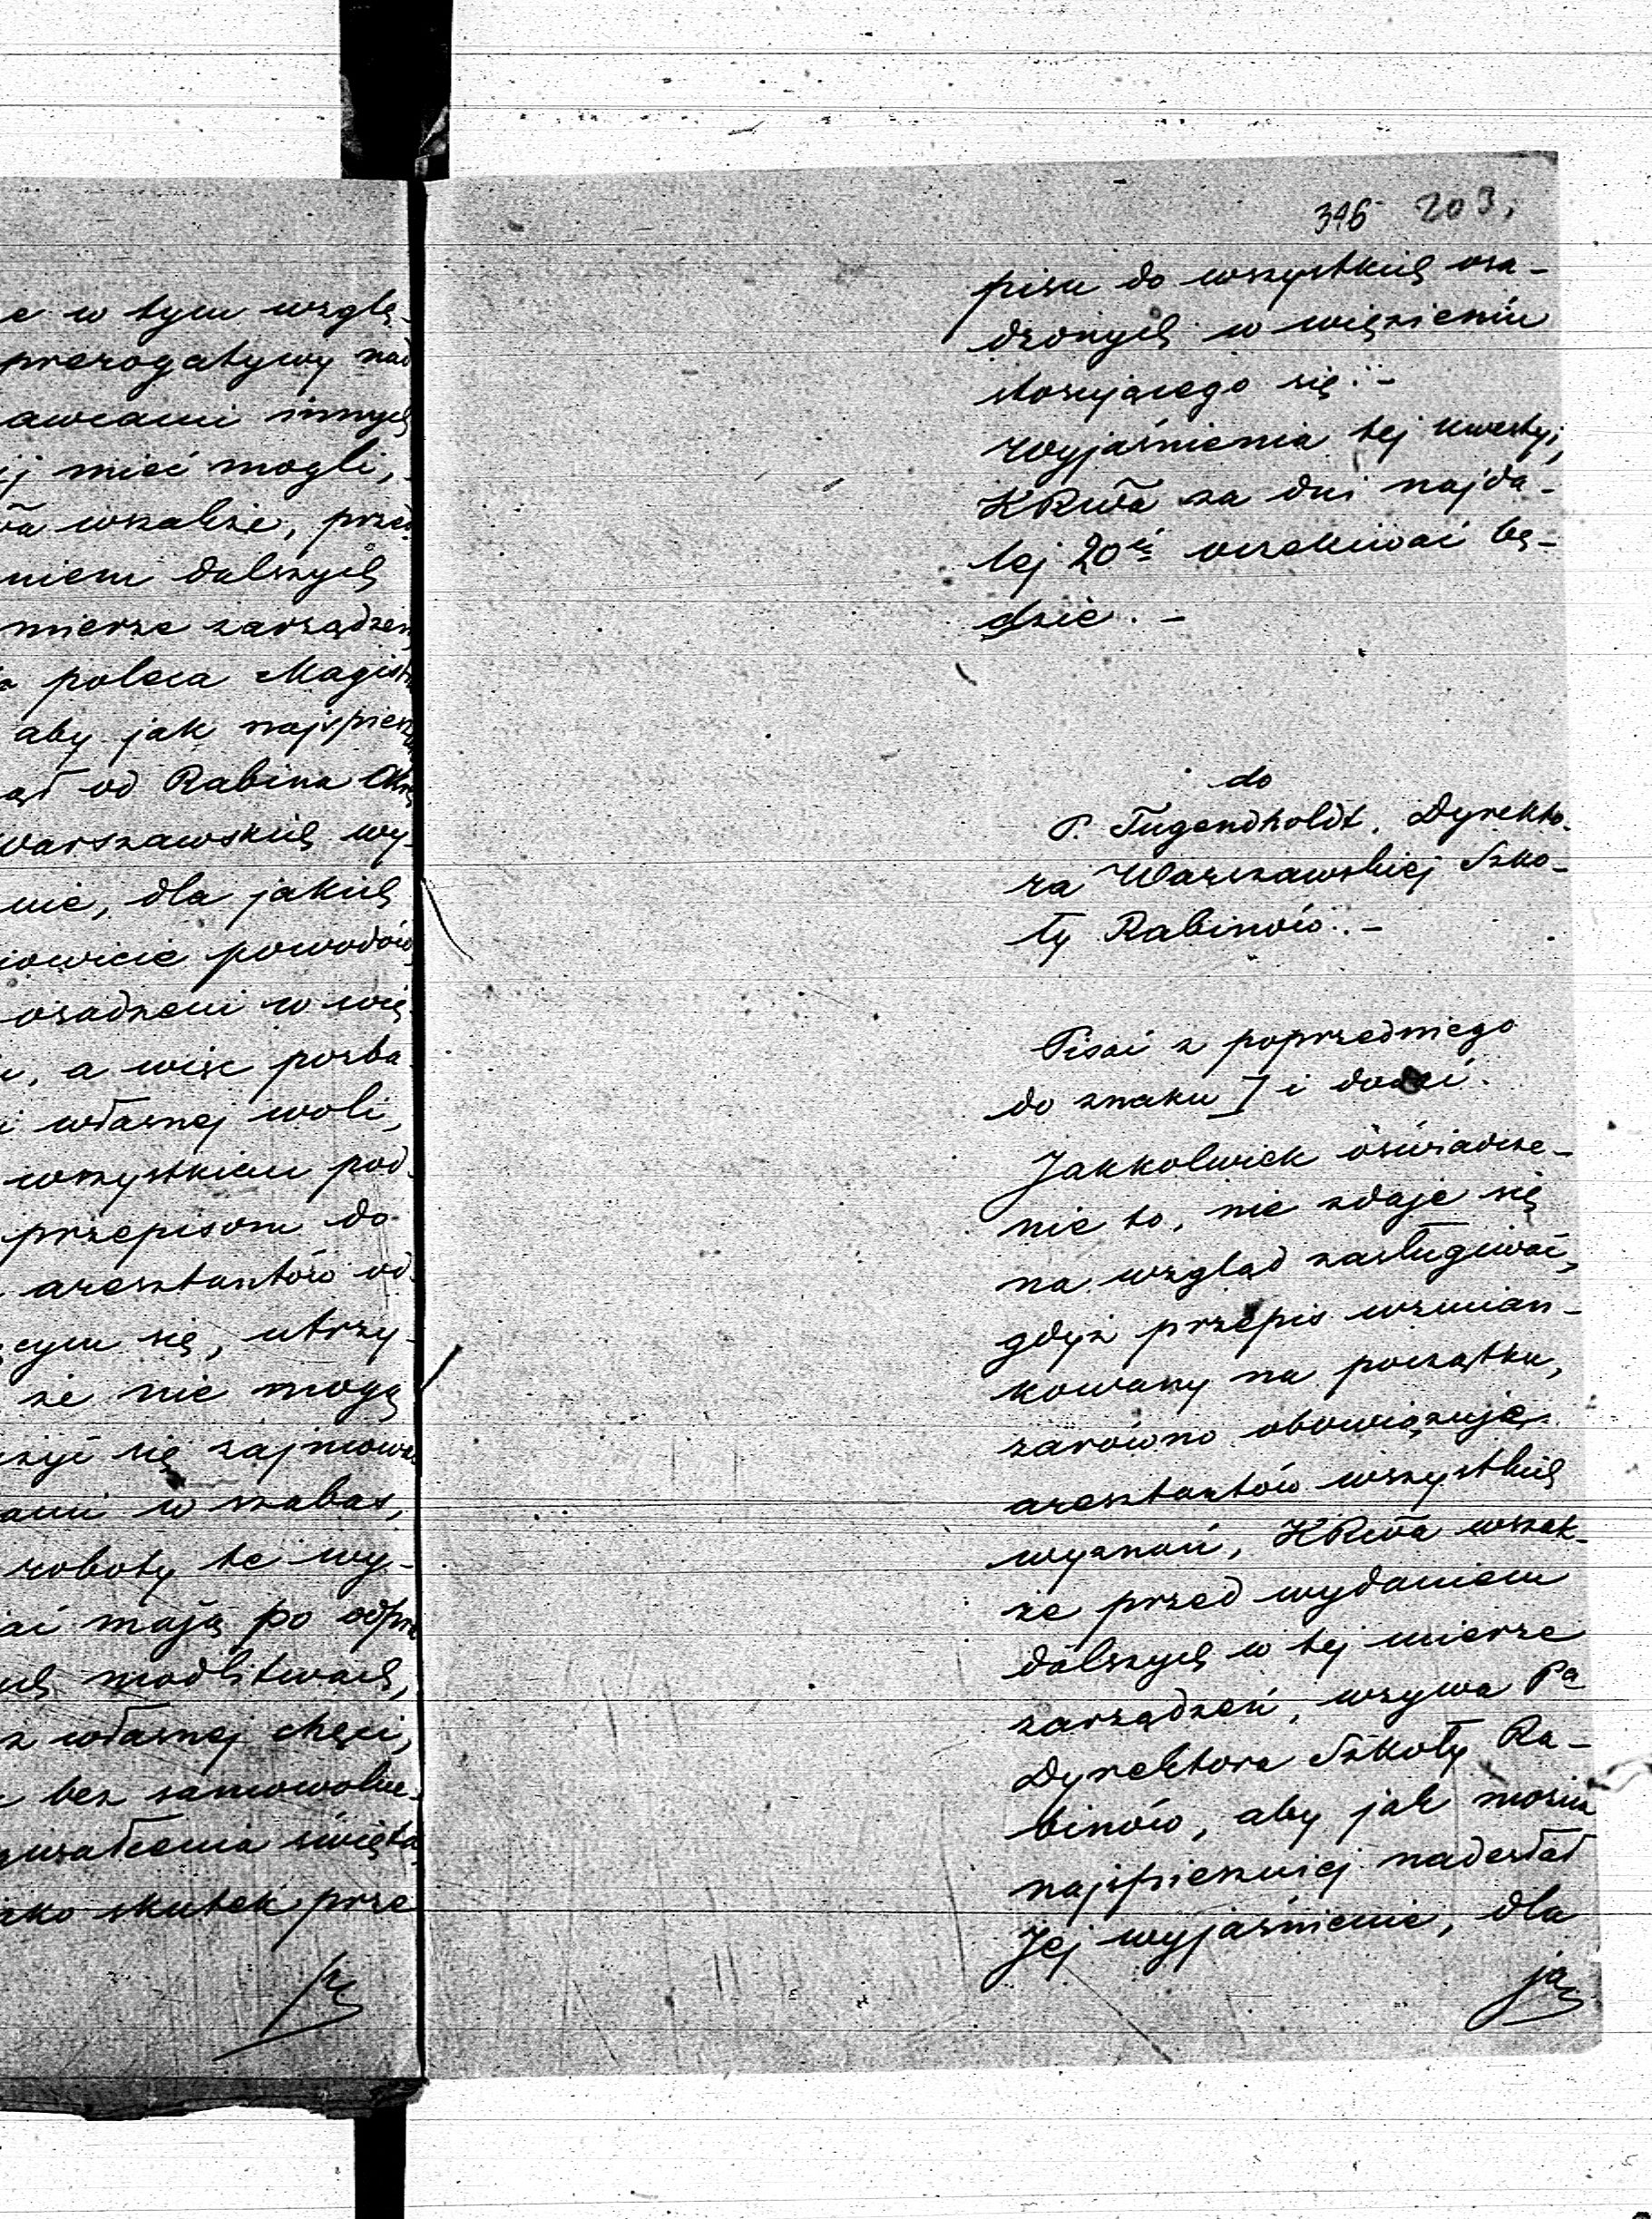 e w tym wzglę-
prerogatywy nad
awcami innych
ij mieć mogli,
wszakże, przed
niem dalszych
mierze zarządzeń
poleca Magist
aby jak najspiesz
od Rabina
Warszawskich wy-
nie, dla jakich
iowicie powodów
osadzeni w wię
i, a więc pozba
i własnej woli,
wszystkiem pod-
przepisom do
aresztantów od-
ącym się, utrzy-
że nie mogą
się zajmowa
ami w szabas,
roboty te wy-
ać mają po odpra
ych modlitwach,
z własnej chęci,
bez samowolne-
gwałcenia święta,
ako skutek prze
346 203,
pisu do wszystkich osa-
dzonych w więzieniu
stosującego się.-
Wyjaśnienia tej kwestyi,
KRwa za dni najda-
lej 20ci oczekiwać bę-
dzie. -
do
P. Tugendholdt, Dyrekto-
ra Warszawskiej Szko-
ły Rabinów.-
Pisać z poprzedniego
do znaku I i dodać.
Jakkolwiek oświadcze-
nie to, nie zdaje się
na wzgląd zasługiwać,
gdyż przepis wzmian-
kowany na początku,
zarówno obowiązuje
aresztantów wszystkich
wyznań, KRwa wszak-
że przed wydaniem
dalszych w tej mierze
zarządzeń, wzywa Pa
Dyrektora Szkoły Ra-
binów, aby jak można
najspieszniej nadesłał
Jej wyjaśnienie, dla
ja